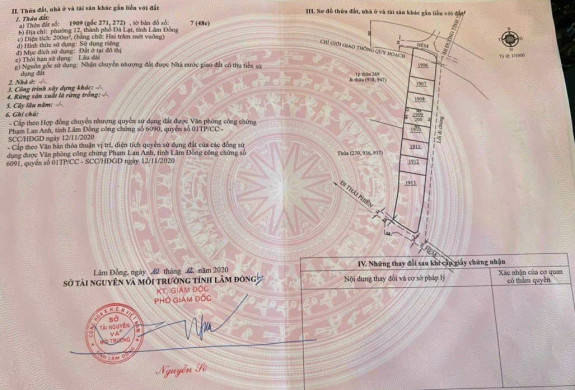 II. Thửa đất, nhà ở và tài sản khác gắn liền với đất
1. Thửa đất:
a) Thửa đất số: 1909 (gốc 271, 272) , tờ bản đồ số: 7 (48c)
b) Địa chỉ: phường 12, thành phố Đà Lạt, tỉnh Lâm Đồng
c) Diện tích: 200m², (bằng chữ: Hai trăm mét vuông)
d) Hình thức sử dụng: Sử dụng riêng
đ) Mục đích sử dụng: Đất ở tại đô thị
e) Thời hạn sử dụng: Lâu dài
g) Nguồn gốc sử dụng: Nhận chuyển nhượng đất được Nhà nước giao đất có thu tiền sử
dụng đất
2. Nhà ở: -/-.
3. Công trình xây dựng khác: -/-.
4. Rừng sản xuất là rừng trồng: -/-.
5. Cây lâu năm: -/-.
6. Ghi chú:
- Cấp theo Hợp đồng chuyển nhượng quyền sử dụng đất được Văn phòng công chứng
Phạm Lan Anh, tỉnh Lâm Đồng công chứng số 6090, quyển số 01TP/CC -
SCC/HĐGD ngày 12/11/2020
- Cấp theo Văn bản thỏa thuận vị trí, diện tích quyền sử dụng đất của các đồng sử
dụng được Văn phòng công chứng Phạm Lan Anh, tỉnh Lâm Đồng công chứng số
6091, quyển số 01TP/CC - SCC/HĐGD ngày 12/11/2020
Lâm Đồng, ngày tháng 12 năm 2020
SỞ TÀI NGUYÊN VÀ MÔI TRƯỜNG TỈNH LÂM ĐỒNG
KT. GIÁM ĐỐC
PHÓ GIÁM ĐỐC
SỞ
TÀI NGUYÊN
VÀ
MÔI TRƯỜNG
III. Sơ đồ thửa đất, nhà ở và tài sản khác gắn liền với đất
CHỈ GIỚI GIAO THÔNG QUY HOẠCH
HẺM
Tỷ lệ: 1/1000
1p thửa 269
& thửa (938, 947)
1906
1907
1908
1909
200
1910
1911
1912
1913
Lối đi chung
Thửa (270, 936, 937)
ĐI THÁI PHIÊN
HẺM
IV. Những thay đổi sau khi cấp giấy chứng nhận
Nội dung thay đổi và cơ sở pháp lý
Xác nhận của cơ quan
có thẩm quyền